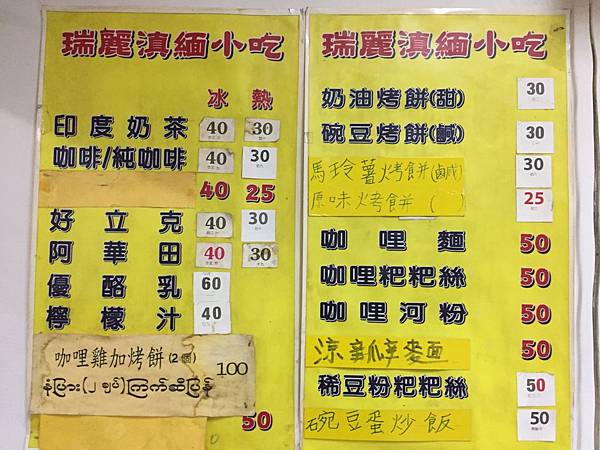 瑞麗滇緬小吃
冰 熱
印度奶茶 40 30
咖啡/純咖啡 40 30
40 25
好立克 40 30
阿華田 40 30
優酪乳 60
檸檬汁 40
咖哩雞加烤餅(2個) 100
နံပြား(၂ချပ်)ကြက်ဆီပြန်
50
瑞麗滇緬小吃
奶油烤餅(甜) 30
碗豆烤餅(鹹) 30
馬玲薯烤餅(鹹) 30
原味烤餅( ) 25
咖哩麵 50
咖哩粑粑絲 50
咖哩河粉 50
50
稀豆粉粑粑絲 50
碗豆蛋炒飯 50